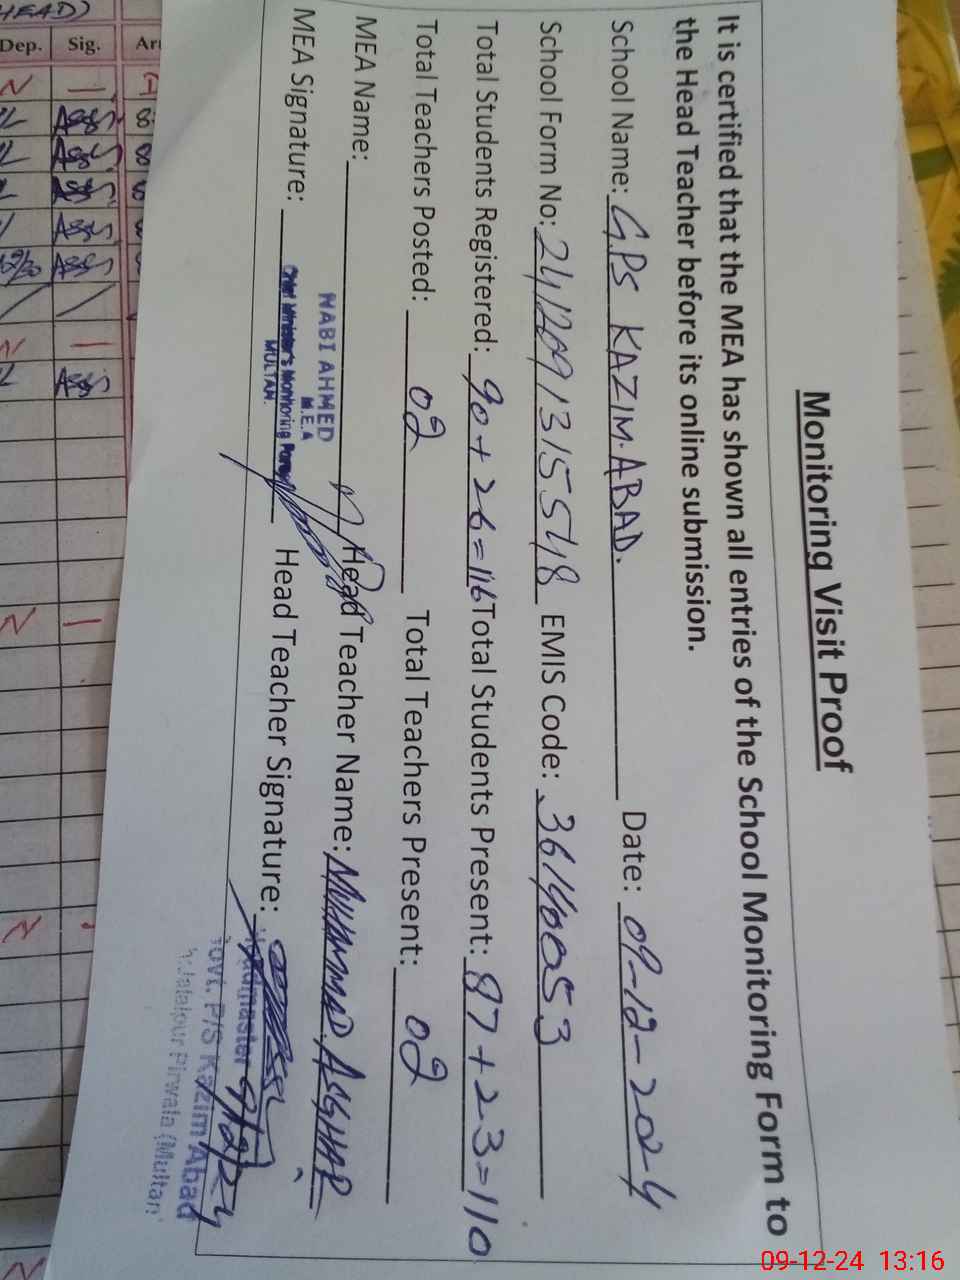 Monitoring Visit Proof
It is certified that the MEA has shown all entries of the School Monitoring Form to
the Head Teacher before its online submission.
School Name: G.P.S KAZIM.ABAD. Date: 09-12-2024
School Form No: 2412091315548 EMIS Code: 36140053
Total Students Registered: 90+26=116 Total Students Present: 87+23=110
Total Teachers Posted: 02 Total Teachers Present: 02
MEA Name: Head Teacher Name: MUHAMMAD ASGHAR
NABI AHMED
M.E.A
Chief Minister's Monitoring Force
MULTAN.
MEA Signature: Head Teacher Signature:
Headmaster
Govt. P/S Kazim Abad
Jalalpur Pirwala (Multan)
HEAD)
Dep. Sig.
09-12-24 13:16